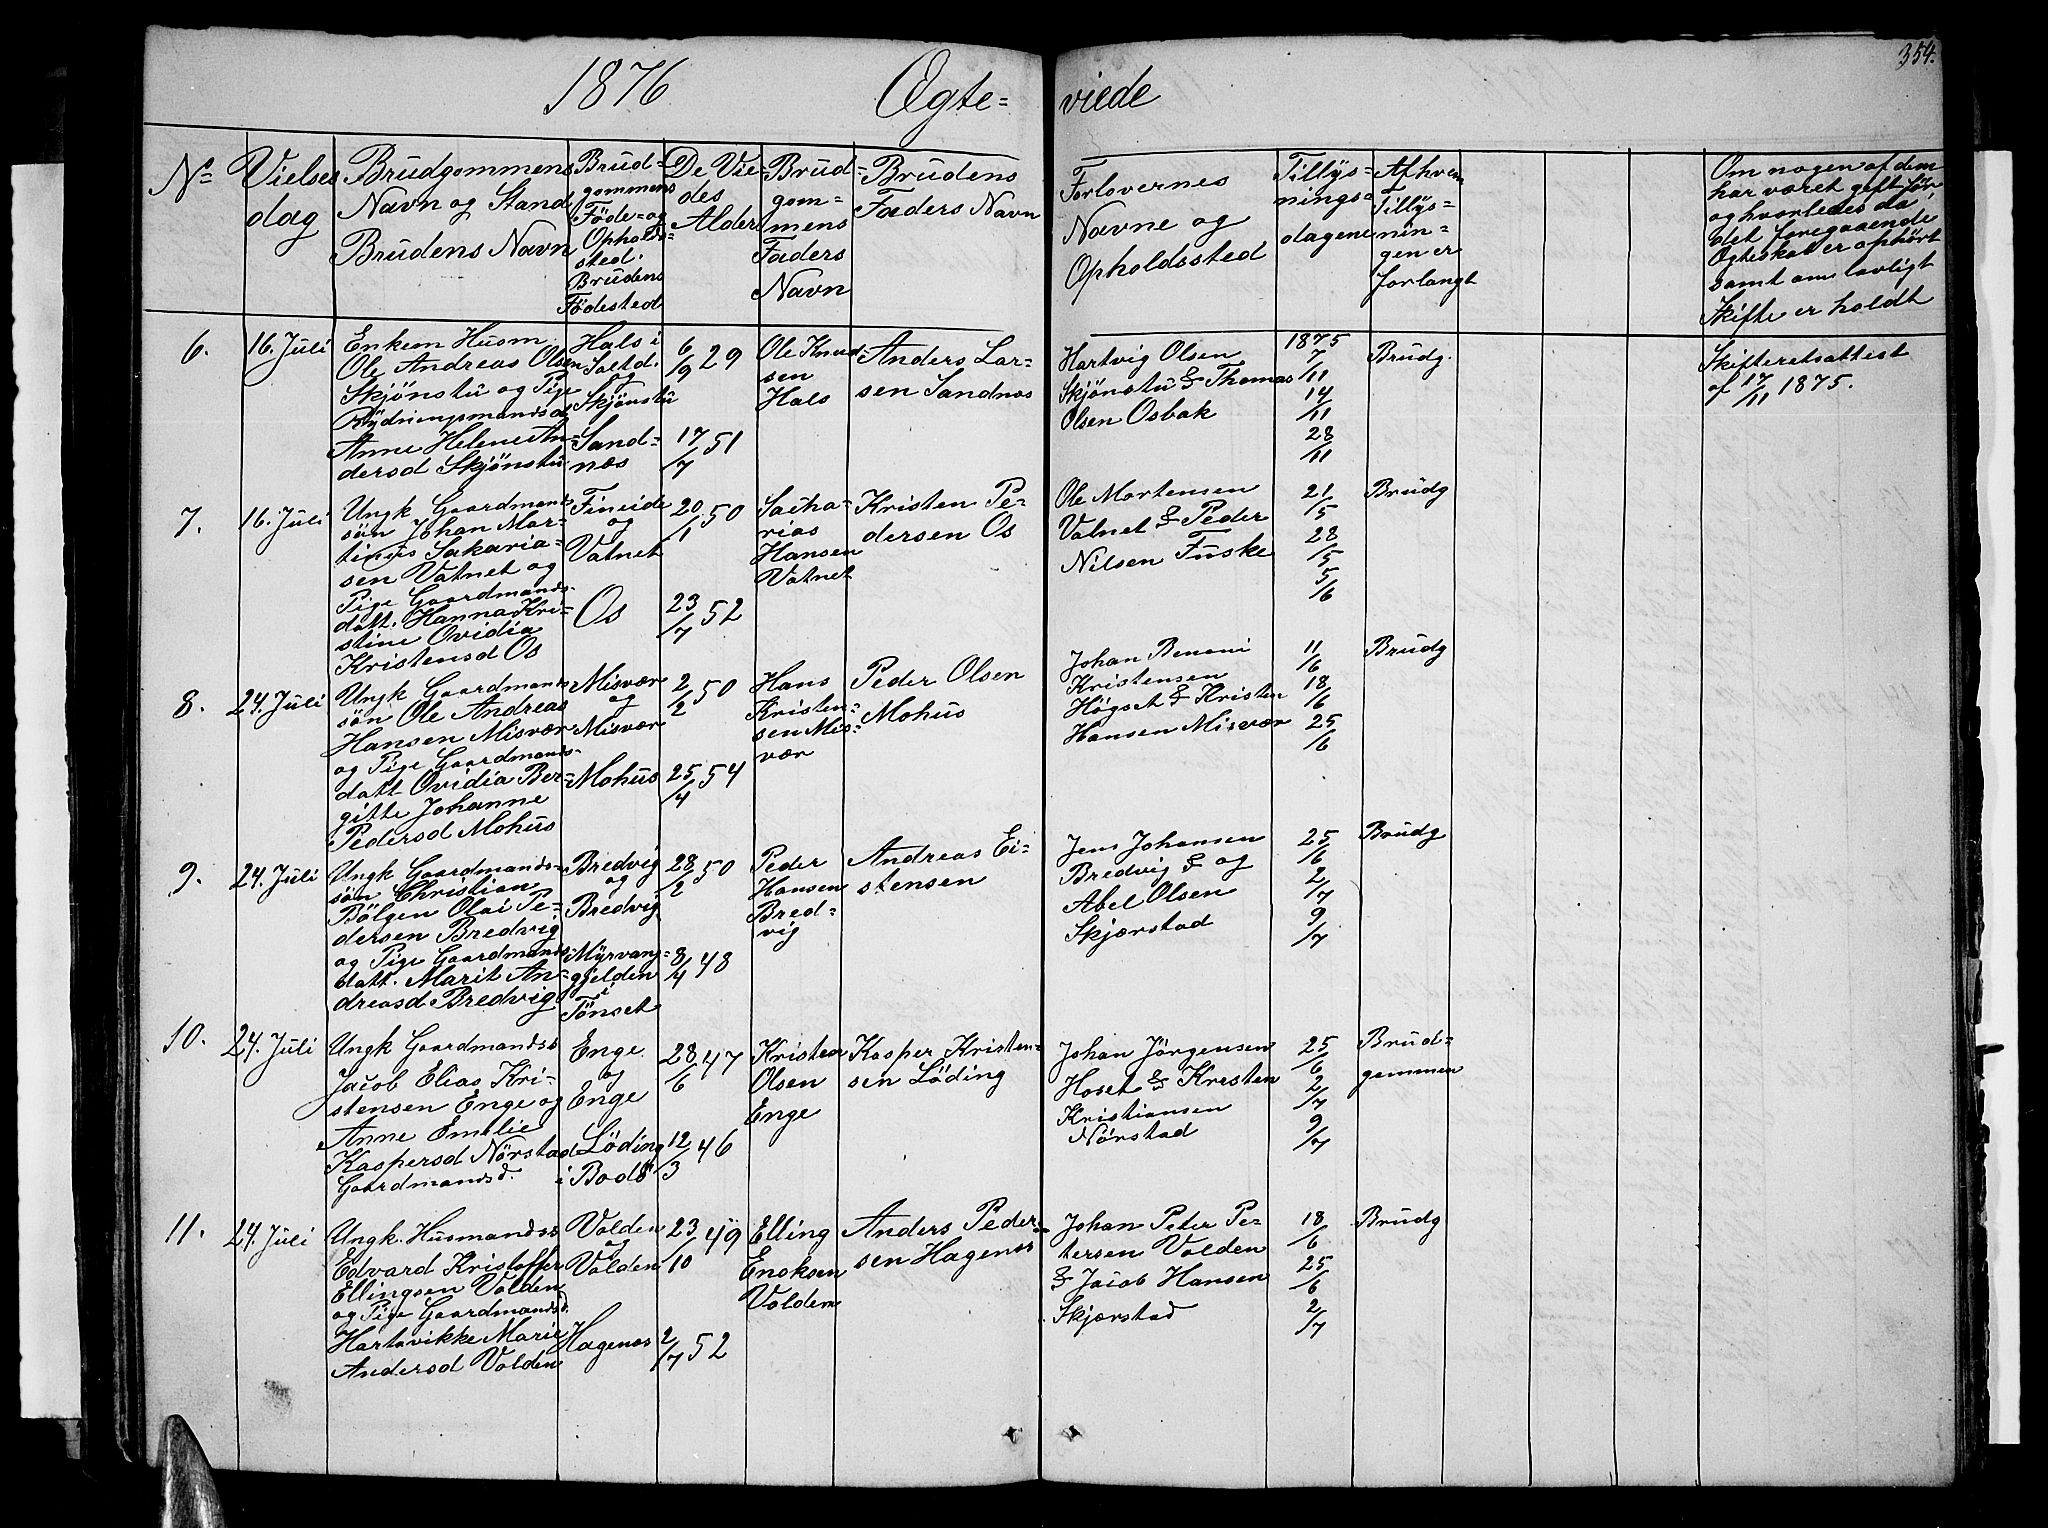 354.
1876 Ægte=viede
No
Vielses
dag
Brudgommens
Navn og Stand
Brudens Navn
Brud=
gommens
Föde=og
Opholds=
sted.
Brudens
Födested
De Vie=
des
Alder
Brud=
gom=
mens
Faders
Navn
Brudens
Faders Navn
Forlovernes
Navne og
Opholdssted
Tillys=
nings=
dagene
Af hvem
Tillys=
nin=
gen er
forlangt
Om nogen af dem
har været gift før
og hvorledes da
det foregaaende
Ægteskab er ophört
samt om lovligt
Skifte er holdt
6.
16. Juli
Enkem Husm.
Ole Andreas Olsen
Skjönstü og Pige
Rydningsmandsd
Anne Helene An=
dersd Skjönstü
Hals i
Saltd.
og
Skjönstü
Sand=
næs
6/9 29
17/7 51
Ole Knud
sen
Hals
Anders Lar=
sen Sandnæs
Hartvig Olsen
Skjönstü & Thomas
Olsen Osbak
1875
7/11
14/11
28/11
Brudg.
Skifteretsattest
af 17/11 1875.
7.
16. Juli
Ungk Gaardmands
sön Johan Mar=
tinus Sakaria=
sen Vatnet og
Pige Gaardmands=
datt. Hanna Kri=
stine Ovidia
Kristensd Os
Fineide
og
Vatnet
Os
20/1 50
23/7 52
Sacha=
rias
Hansen
Vatnet
Kristen Pe=
dersen Os
Ole Mortensen
Vatnet & Peder
Nilsen Fuske
21/5
28/5
5/6
Brudg
8.
24. Juli
Ungk Gaardmands
sön Ole Andreas
Hansen Misvær
og Pige Gaardmands=
datt Ovidia Ber=
gitte Johanne
Pedersd Mohus
Misvær
og
Misvær
Mohus
2/2 50
25/4 54
Hans
Kristen=
sen Mis=
vær
Peder Olsen
Mohus
Johan Benoni
Kristensen
Högset & Kristen
Hansen Misvær
11/6
18/6
25/6
Brudg
9.
24. Juli
Ungk Gaardmands=
sön Christian
Bölgen Olai Pe=
dersen Bredvig
og Pige Gaardmands
datt. Marit An=
dreasd Bredvig
Bredvig
og
Bredvig
Myrvang=
gjelden
i
Tönset
28/2 50
8/4 48
Peder
Hansen
Bred=
vig
Andreas Ei=
stensen
Jens Johansen
Bredvig & og
Abel Olsen
Skjærstad
25/6
2/7
9/7
Brudg
10.
24. Juli
Ungk Gaardmandss
Jacob Elias Kri=
stensen Enge og
Anne Emilie
Kaspersd Nörstad
Gaardmandsd.
Enge
og
Enge
Löding
i Bodö
28/6 47
12/3 46
Kristen
Olsen
Enge
Kasper Kristen=
sen Löding
Johan Jörgensen
Hoset & Kristen
Kristiansen
Nörstad
25/6
2/7
9/7
Brud=
gommen
11.
24. Juli
Ungk. Husmandss
Edvard Kristoffer
Ellingsen Valden
og Pige Gaardmandsd.
Hartavikke Marie
Andersd Valden
Valden
og
Valden
Hagenæs
23/10 49
2/7 52
Elling
Enoksen
Valden
Anders Peder=
sen Hagenæs
Johan Peter Pe=
tersen Valden
& Jacob Hansen
Skjærstad
18/6
25/6
2/7
Brudg